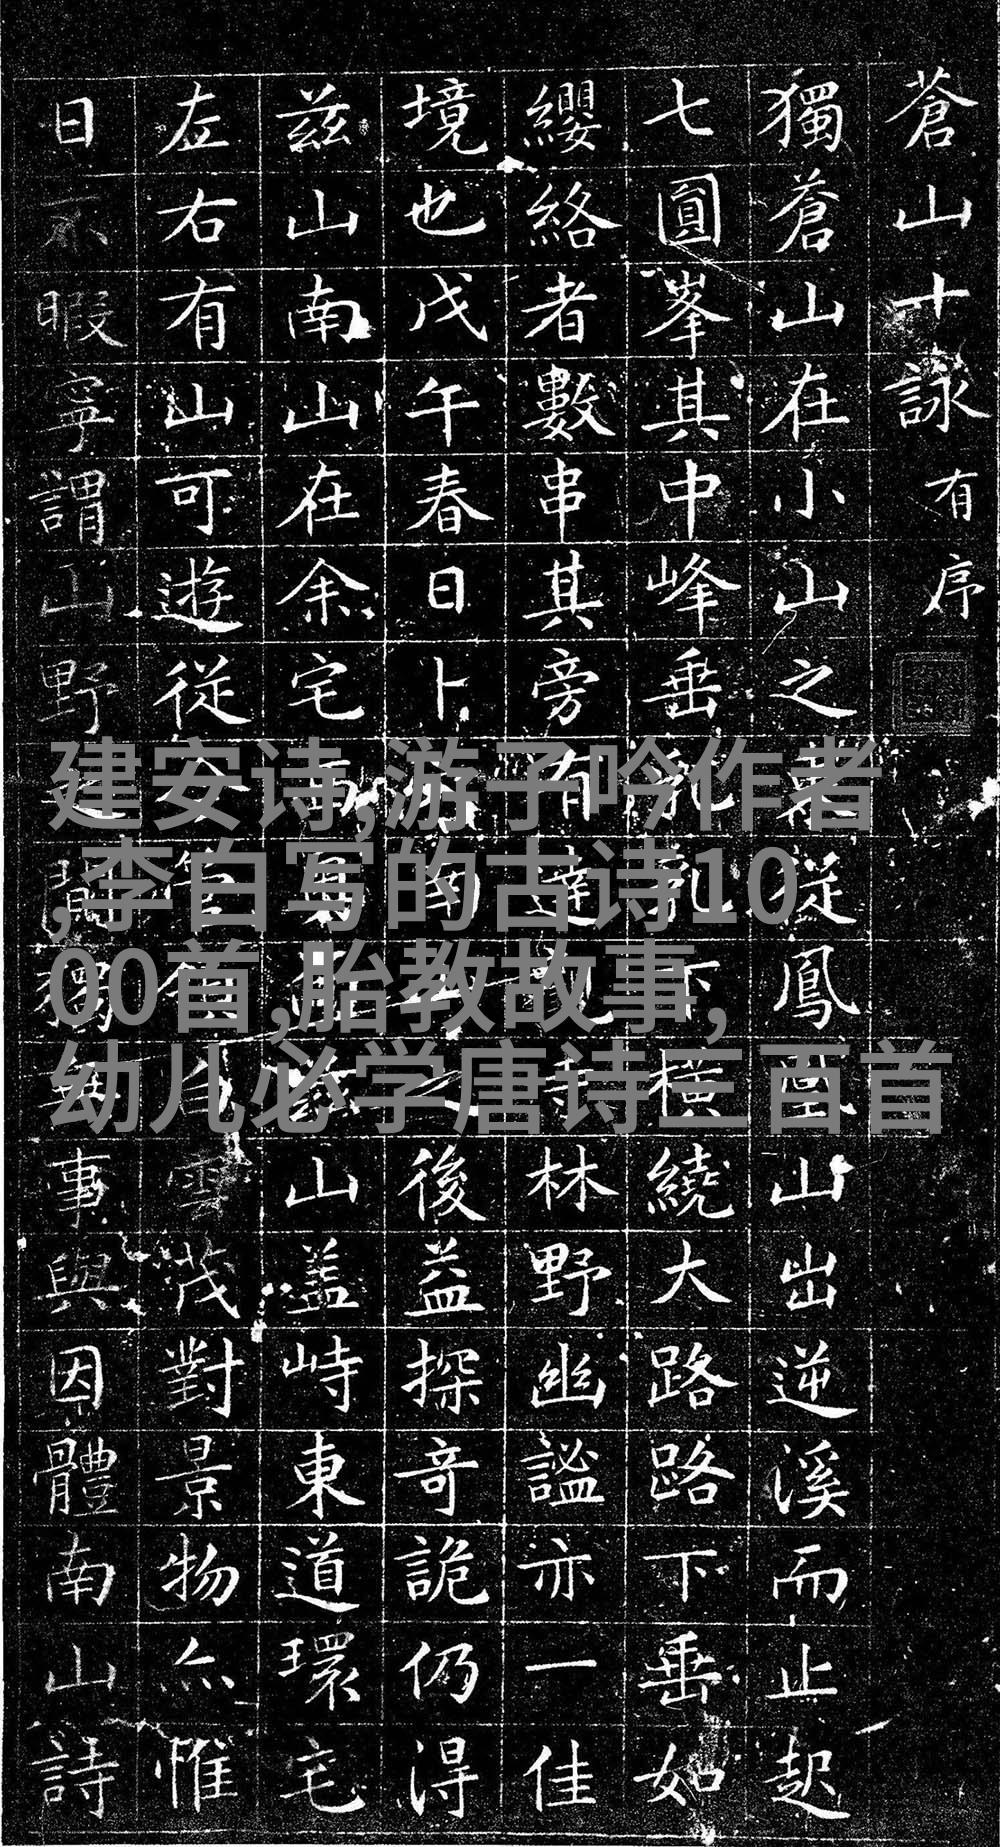 蒼山十詠有序
獨蒼山在小山之 從鳳凰山出逆溪而止起
七圓峯其中峰垂 乳 橫繞大路路下垂如
纓絡者數串其旁有達 林野幽謐亦一佳
境也戊午春日卜 南 之後益探奇詭仍得
茲山南山在余宅 山蓋峙東道環宅
左右有山可遊從 雲茂對景物亦惟
日不暇寧謂山野 事與因體南山詩
建安诗,游子吟作者
,李白写的古诗10
00首,胎教故事,
幼儿必学唐诗三百首